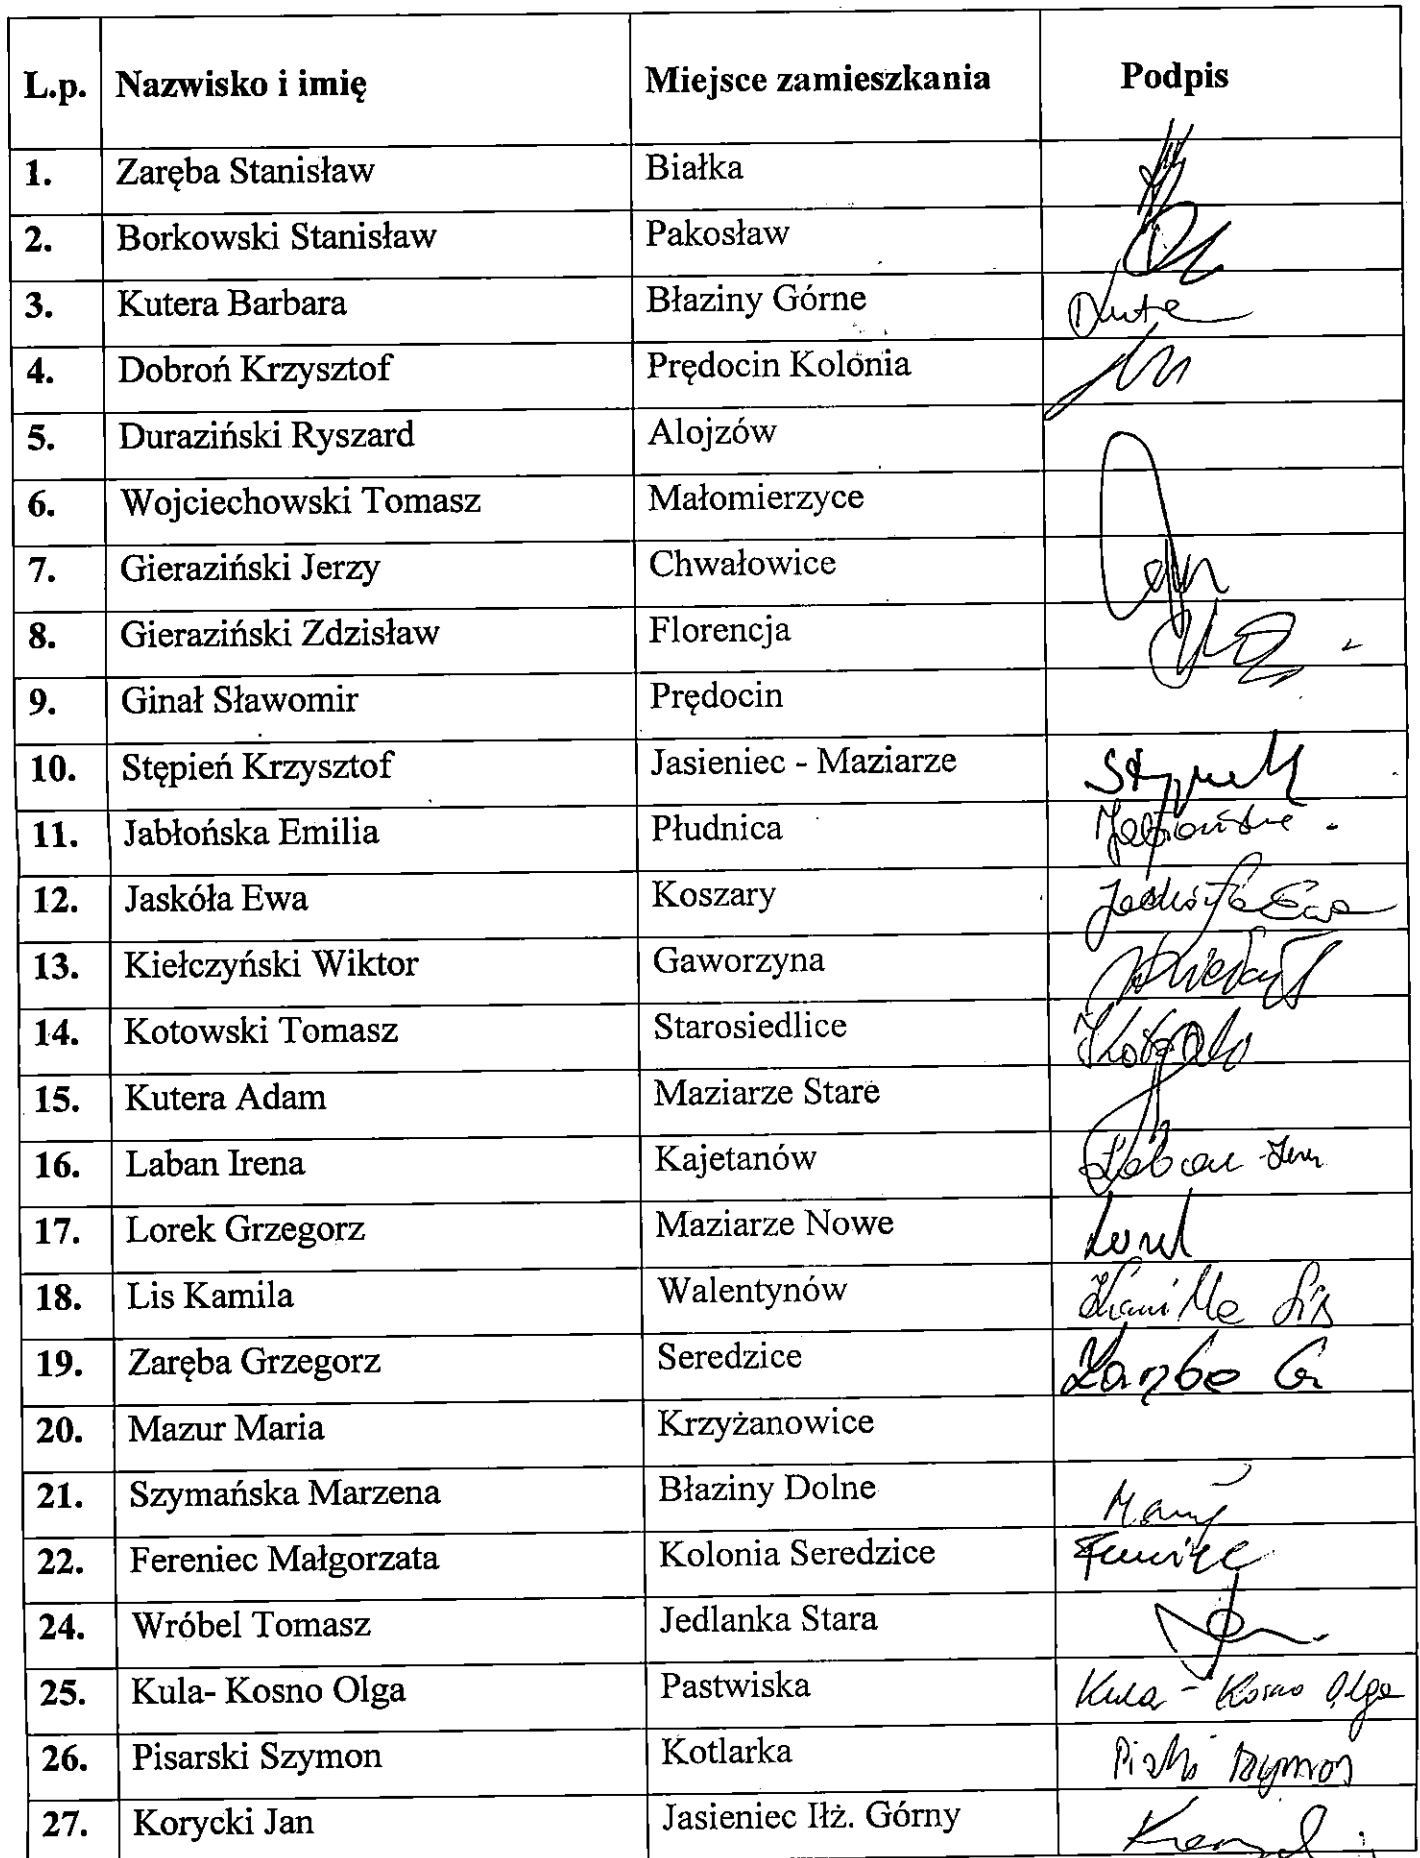 L.p. Nazwisko i imię Miejsce zamieszkania Podpis
1. Zaręba Stanisław Białka
2. Borkowski Stanisław Pakosław
3. Kutera Barbara Błaziny Górne
4. Dobroń Krzysztof Prędocin Kolonia
5. Duraziński Ryszard Alojzów
6. Wojciechowski Tomasz Małomierzyce
7. Gieraziński Jerzy Chwałowice
8. Gieraziński Zdzisław Florencja
9. Ginał Sławomir Prędocin
10. Stępień Krzysztof Jasieniec - Maziarze
11. Jabłońska Emilia Płudnica Jabłońska
12. Jaskóła Ewa Koszary Jaskóła Ewa
13. Kiełczyński Wiktor Gaworzyna
14. Kotowski Tomasz Starosiedlice
15. Kutera Adam Maziarze Stare
16. Laban Irena Kajetanów Laban
17. Lorek Grzegorz Maziarze Nowe
18. Lis Kamila Walentynów Kamila Lis
19. Zaręba Grzegorz Seredzice Zaręba G
20. Mazur Maria Krzyżanowice
21. Szymańska Marzena Błaziny Dolne
22. Fereniec Małgorzata Kolonia Seredzice
24. Wróbel Tomasz Jedlanka Stara
25. Kula- Kosno Olga Pastwiska Kula - Kosno Olga
26. Pisarski Szymon Kotlarka Szymon
27. Korycki Jan Jasieniec Iłż. Górny